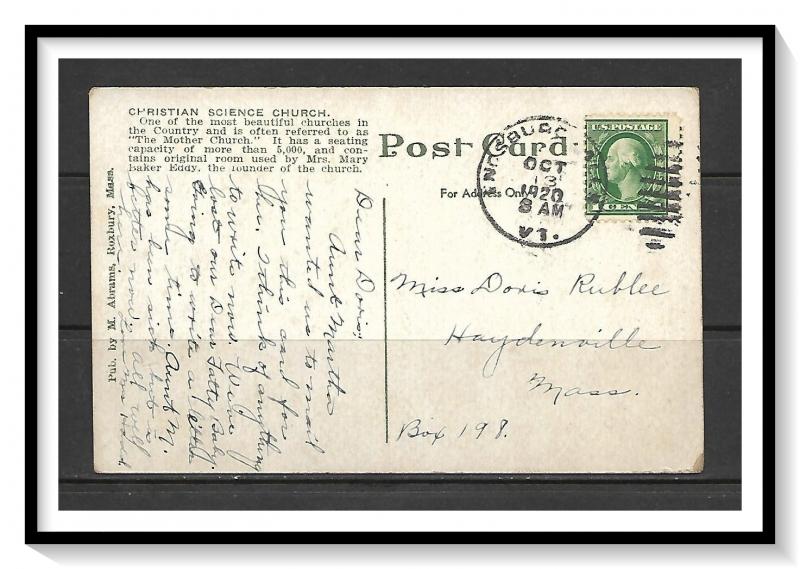 CHRISTIAN SCIENCE CHURCH.
One of the most beautiful churches in
the Country and is often referred to as
"The Mother Church." It has a seating
capacity of more than 5,000, and con-
tains original room used by Mrs. Mary
Baker Eddy, the founder of the church.
Pub. by M. Abrams, Roxbury, Mass.
Post Card
For Address Only
ENOSBURG
OCT
13
1920
8 AM
VT.
U.S. POSTAGE
CENT
Dear Doris;
Aunt Martha
wanted us to mail
you this card for
her. I think of anything
to write now. We've
lost our Dear Fatty Baby.
Going to write a little
some time. Aunt M.
has been sick but is
better now. All well
Miss Doris Rublee
Haydenville
Mass.
Box 198.